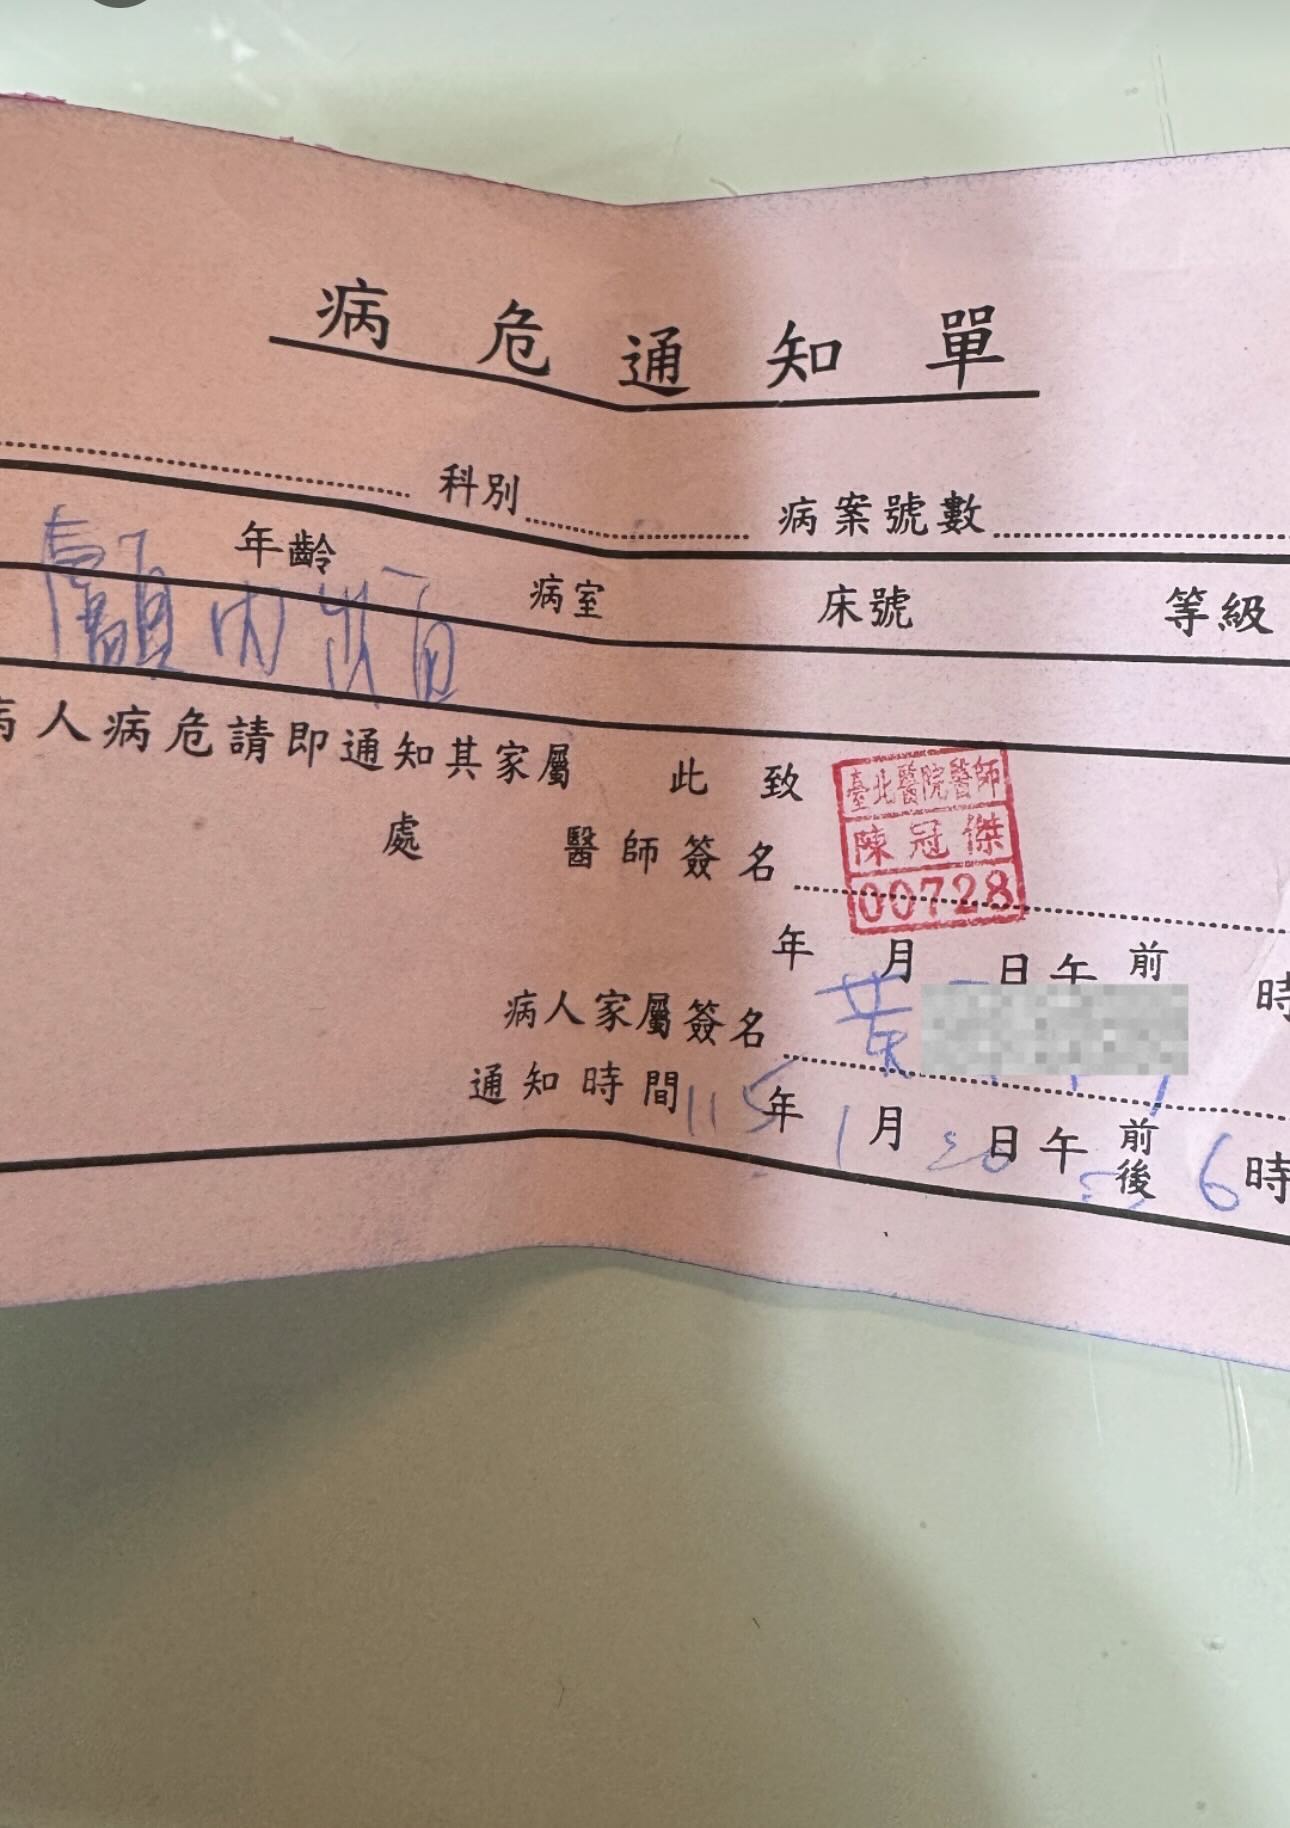 病危通知單
科別 病案號數
年齡 病室 床號 等級
顱內出血
病人病危請即通知其家屬 此致
臺北醫院醫師
陳冠傑
00728
處 醫師簽名
年 月 日午 前 時
病人家屬簽名 黃
通知時間 115年 1月 20日午 前後 6時